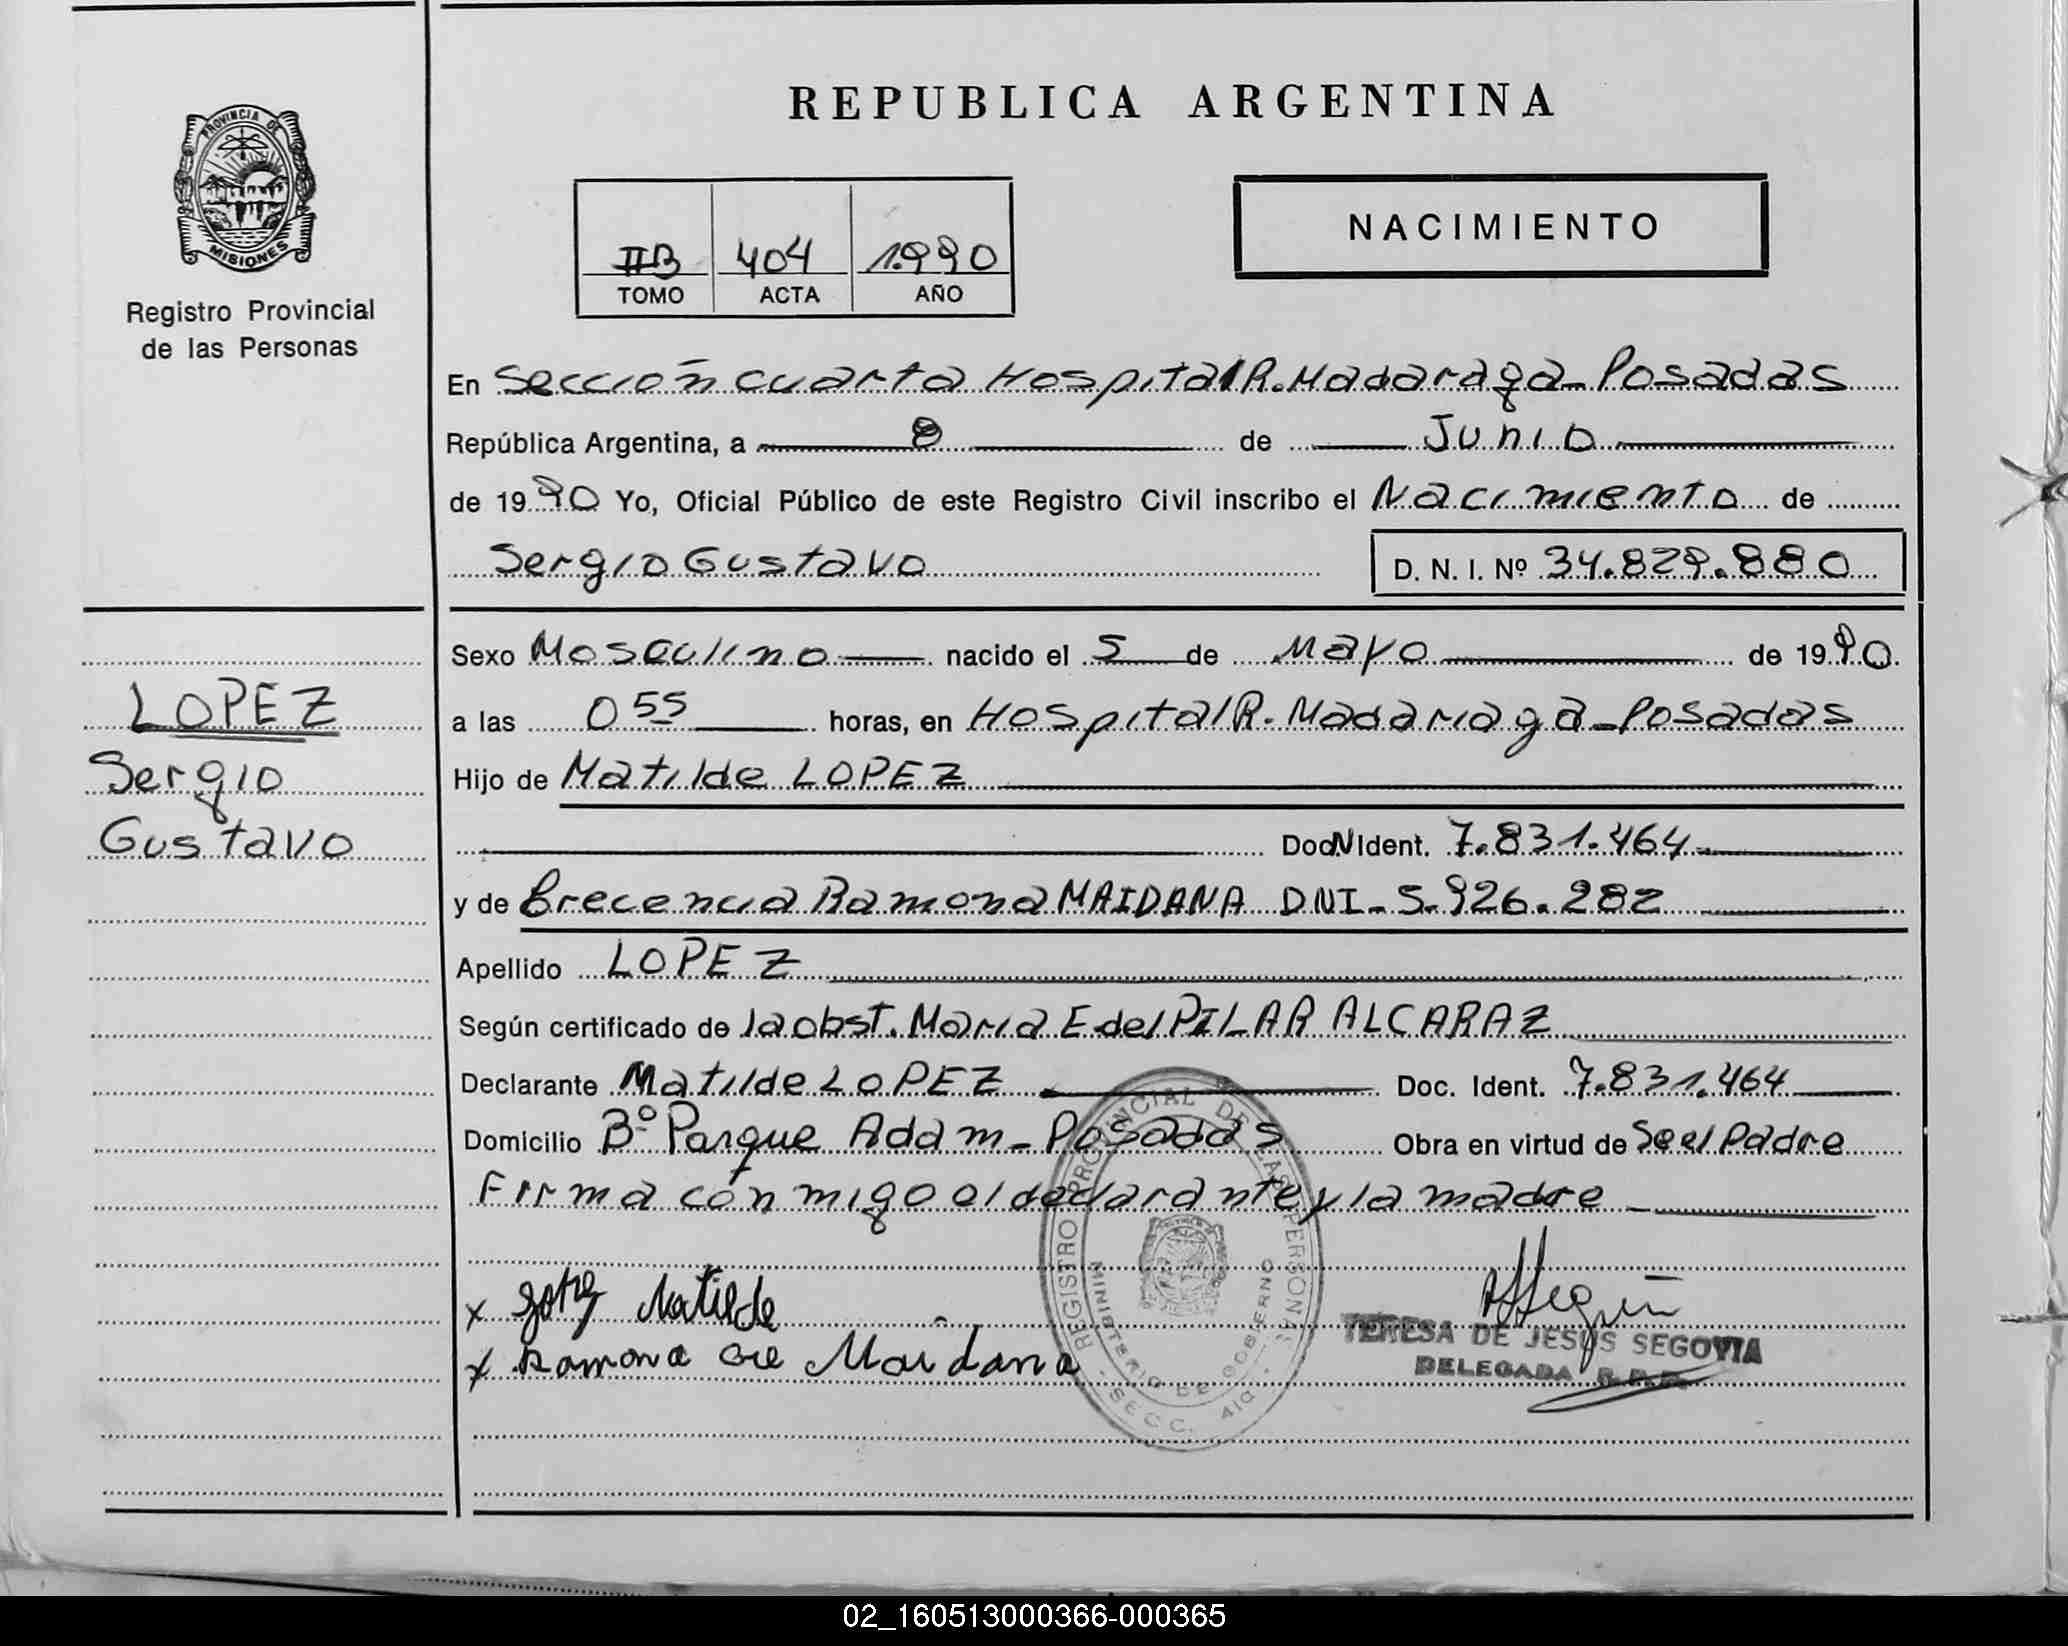 REPUBLICA ARGENTINA
PROVINCIA DE
MISIONES
Registro Provincial
de las Personas
NACIMIENTO
IIB 404 1.990
TOMO ACTA AÑO
En Sección cuarta Hospital R. Madaraga - Posadas
República Argentina, a 8 de Junio
de 1990 Yo, Oficial Público de este Registro Civil inscribo el Nacimiento de
Sergio Gustavo D. N. I. Nº 34.829.880
LOPEZ
Sergio
Gustavo
Sexo Masculino nacido el 5 de Mayo de 1990
a las 0 55 horas, en Hospital R. Madariaga - Posadas
Hijo de Matilde LOPEZ
Doc. N Ident. 7.831.464
y de Crecencia Ramona MAIDANA DNI - 5.926.282
Apellido LOPEZ
Según certificado de la obst. Maria E. del PILAR ALCARAZ
Declarante Matilde LOPEZ Doc. Ident. 7.831.464
Domicilio Bº Parque Adam - Posadas Obra en virtud de Se el Padre
Firma con migo el declarante y la madre
x Matilde
x Ramona Maidana
TERESA DE JESUS SEGOVIA
DELEGADA R. P. P.
REGISTRO PROVINCIAL DE LAS PERSONAS
MINISTERIO DE GOBIERNO
SECC. 4ta
02_160513000366-000365